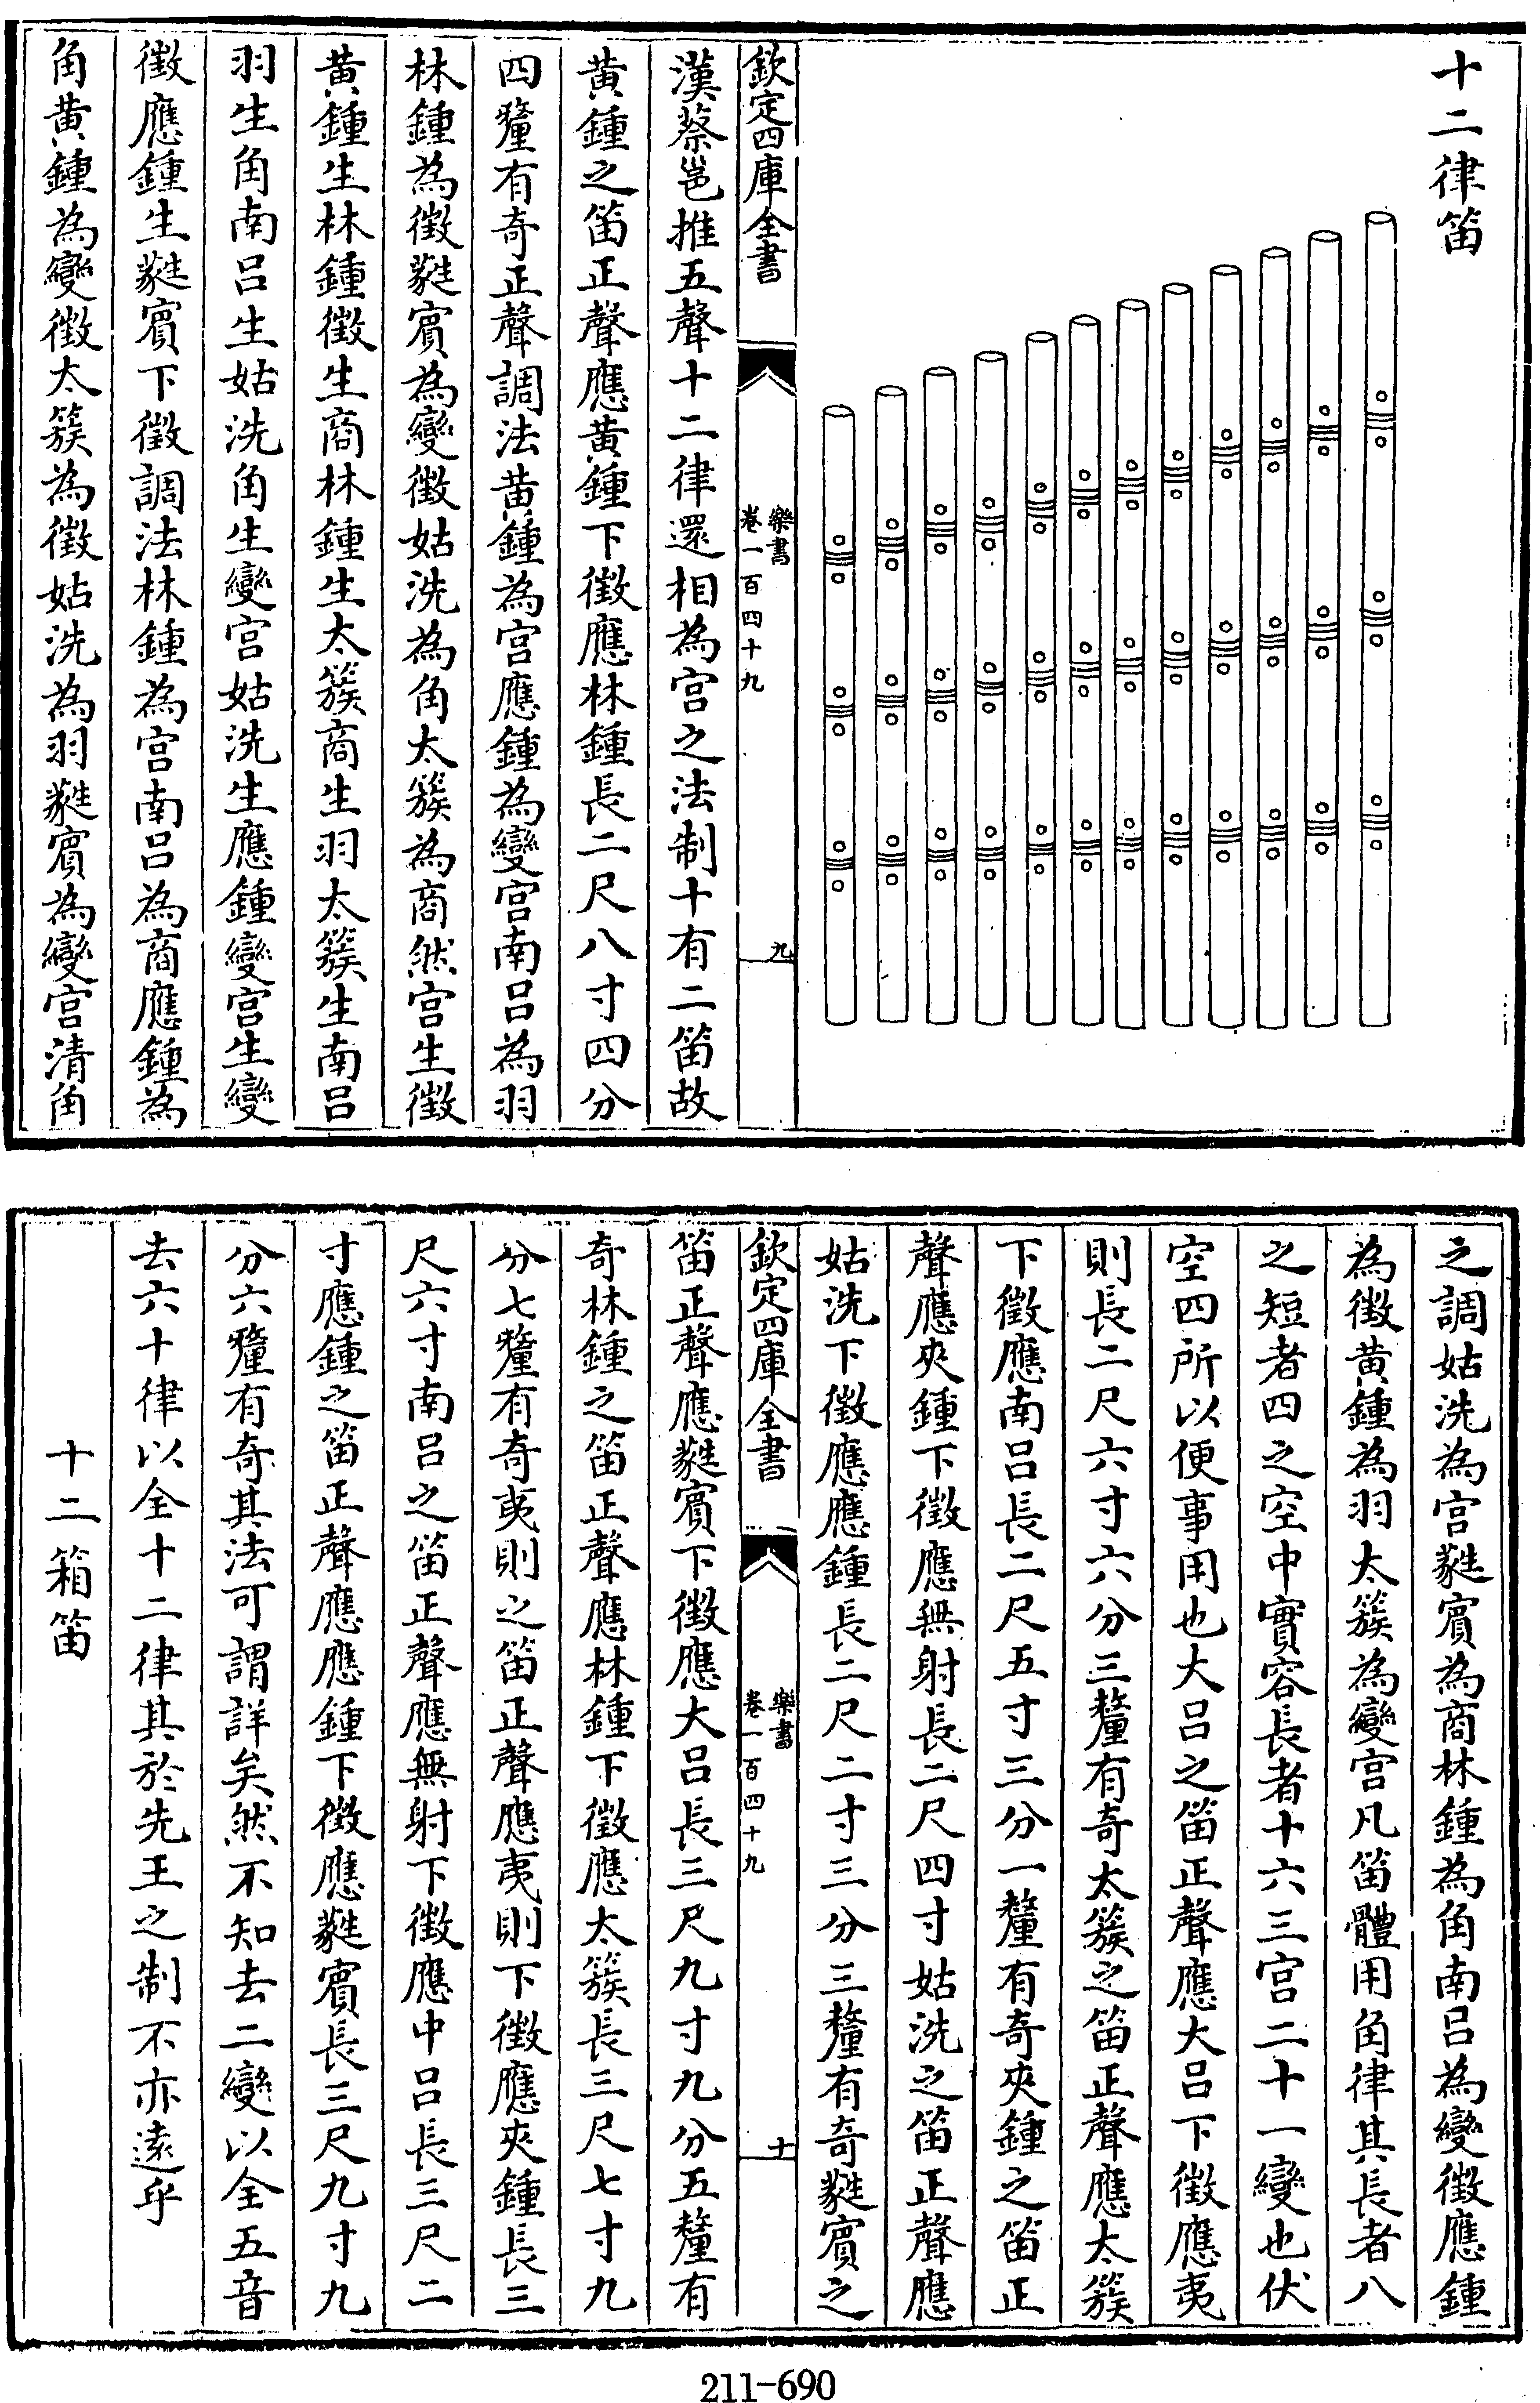 十二律笛
欽定四庫全書
樂書
卷一百四十九
九
漢蔡邕推五聲十二律還相為宮之法制十有二笛故
黃鍾之笛正聲應黃鍾下徵應林鍾長二尺八寸四分
四釐有奇正聲調法黃鍾為宮應鍾為變宮南呂為羽
林鍾為徵蕤賓為變徵姑洗為角太簇為商然宮生徵
黃鍾生林鍾徵生商林鍾生太簇商生羽太簇生南呂
羽生角南呂生姑洗角生變宮姑洗生應鍾變宮生變
徵應鍾生蕤賓下徵調法林鍾為宮南呂為商應鍾為
角黃鍾為變徵太簇為徵姑洗為羽蕤賓為變宮清角
之調姑洗為宮蕤賓為商林鍾為角南呂為變徵應鍾
為徵黃鍾為羽太簇為變宮凡笛體用角律其長者八
之短者四之空中實容長者十六三宮二十一變也伏
空四所以便事用也大呂之笛正聲應大呂下徵應夷
則長二尺六寸六分三釐有奇太簇之笛正聲應太簇
下徵應南呂長二尺五寸三分一釐有奇夾鍾之笛正
聲應夾鍾下徵應無射長二尺四寸姑洗之笛正聲應
姑洗下徵應應鍾長二尺二寸三分三釐有奇蕤賓之
欽定四庫全書
樂書
卷一百四十九
十
笛正聲應蕤賓下徵應大呂長三尺九寸九分五釐有
奇林鍾之笛正聲應林鍾下徵應太簇長三尺七寸九
分七釐有奇夷則之笛正聲應夷則下徵應夾鍾長三
尺六寸南呂之笛正聲應無射下徵應中呂長三尺二
寸應鍾之笛正聲應應鍾下徵應蕤賓長三尺九寸九
分六釐有奇其法可謂詳矣然不知去二變以全五音
去六十律以全十二律其於先王之制不亦遠乎
十二箱笛
211-690